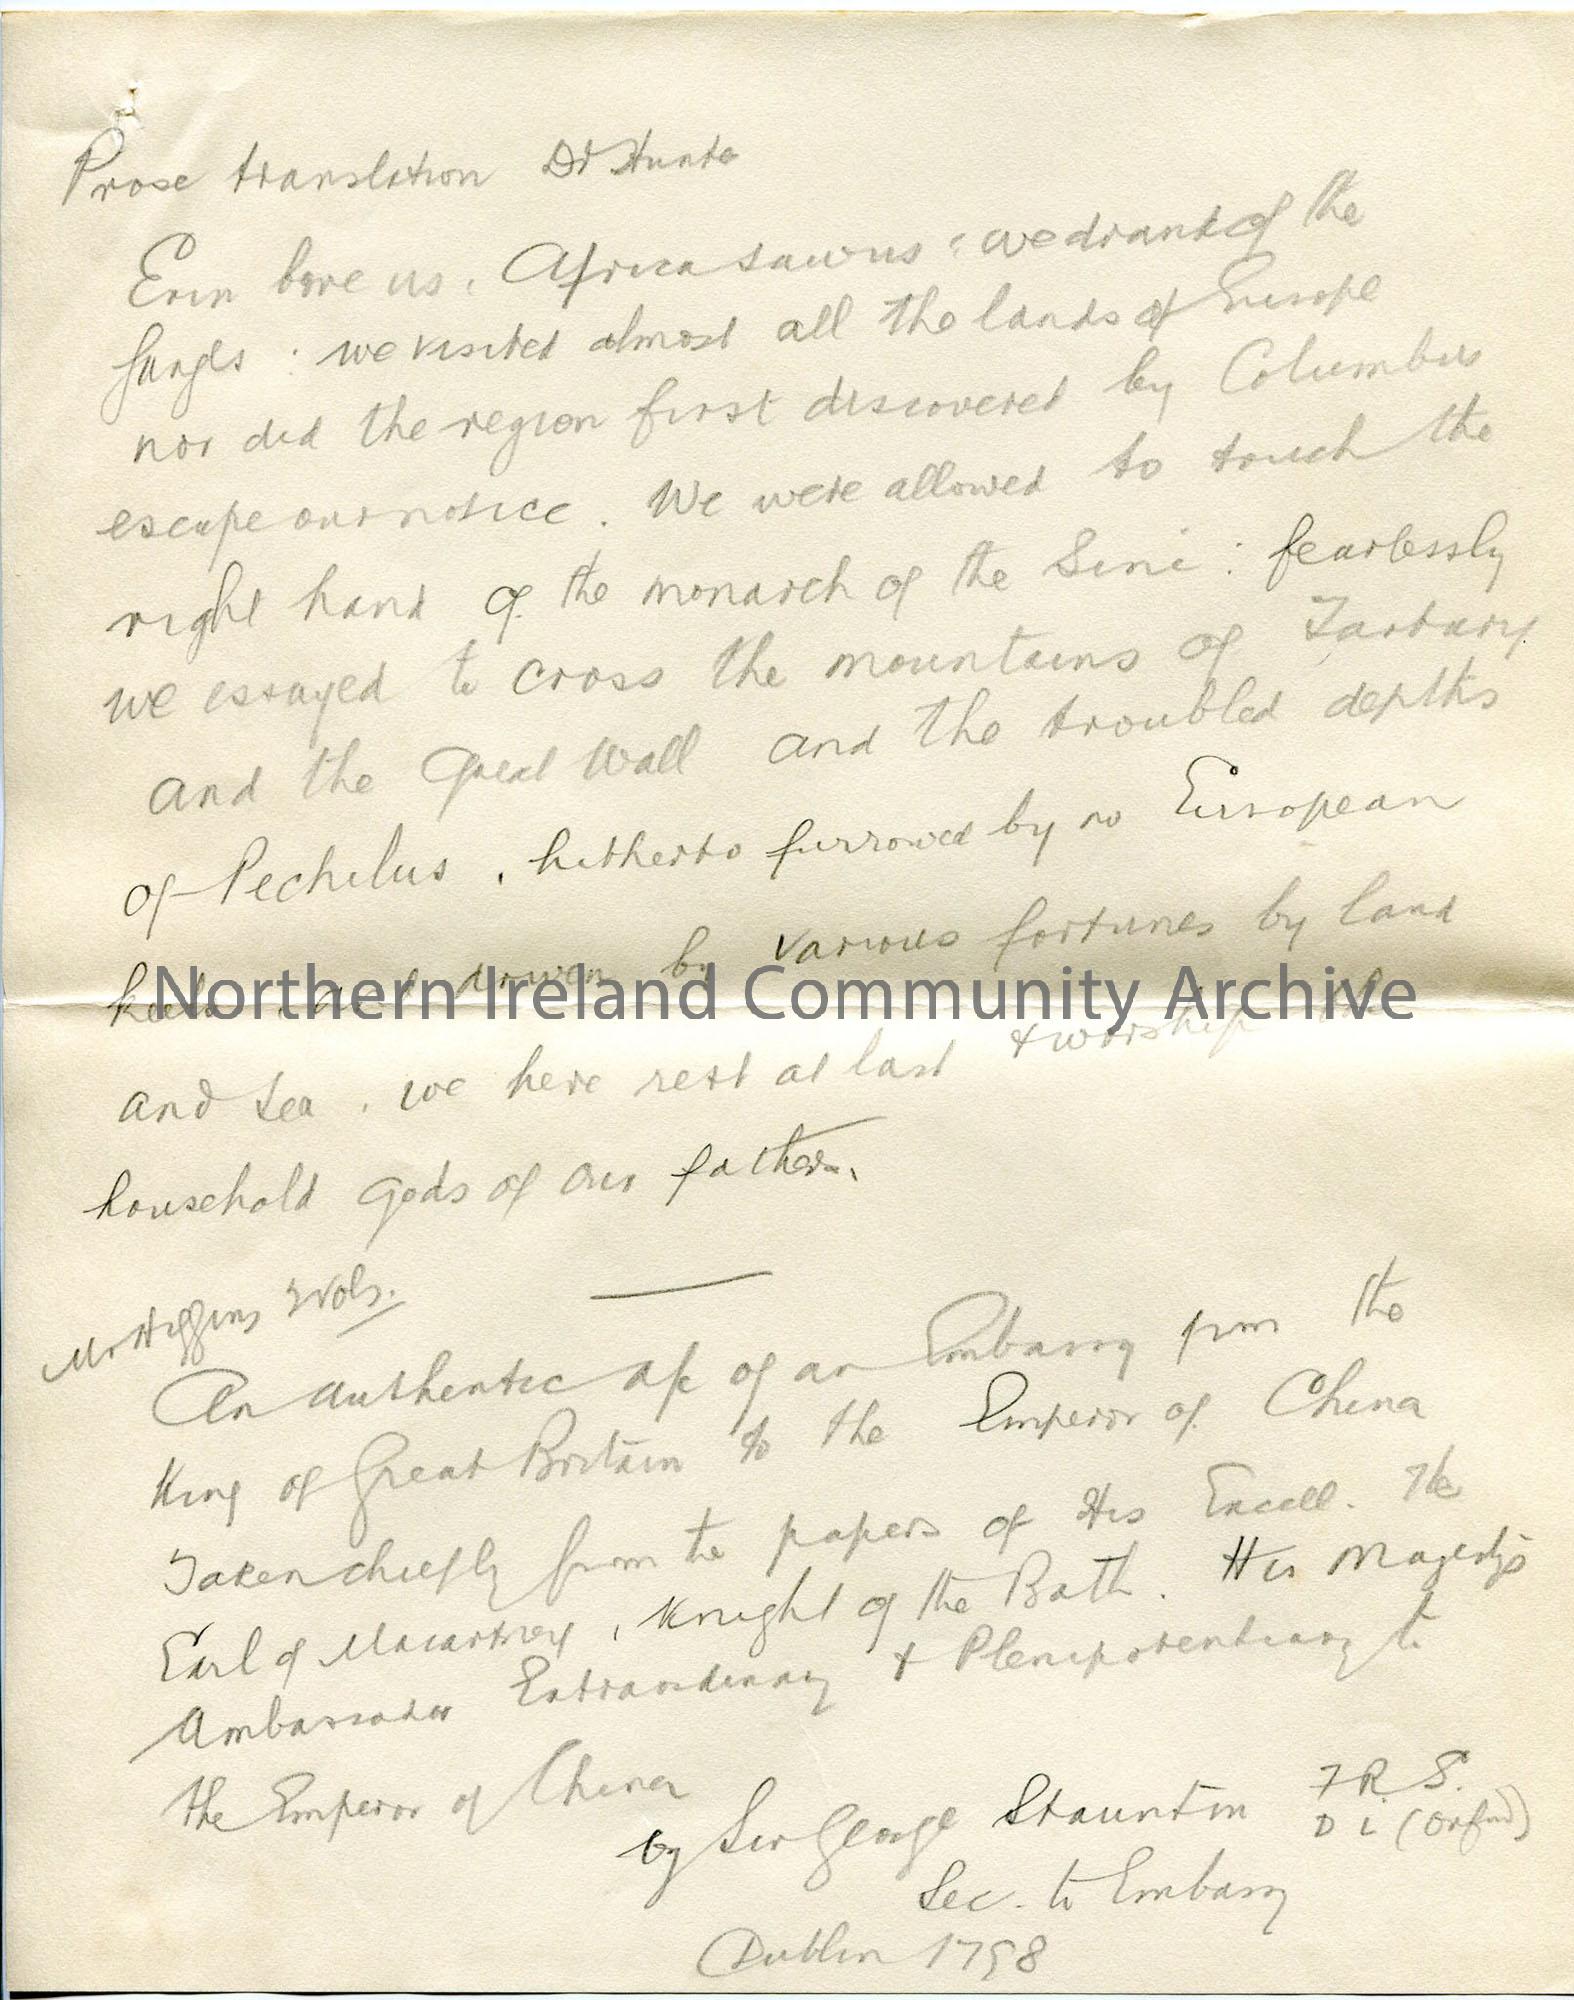 Prose translation Dr Hunter
Erin bore us. Africa saw us: we drank of the
Ganges: we visited almost all the lands of Europe
nor did the region first discovered by Columbus
escape our notice. We were allowed to touch the
right hand of the monarch of the Sini: fearlessly
we essayed to cross the mountains of Tartary
and the Great Wall and the troubled depths
of Pechilus, hitherto furrowed by no European
keels, and driven by various fortunes by land
Northern Ireland Community Archive
and sea, we here rest at last & worship the
household gods of our fathers.
Mr Higgins 3 Vols.
An authentic a/c of an Embassy from the
King of Great Britain to the Emperor of China
Taken chiefly from the papers of His Excell. The
Earl of Macartney, Knight of the Bath. His Majesty's
Ambassador Extraordinary & Plenipotentiary to
the Emperor of China
by Sir George Staunton F R. S.
D L (Oxford)
Sec. to Embassy
Dublin 1798